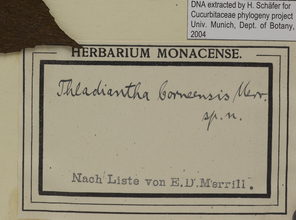 DNA extracted by H. Schäfer for
Cucurbitaceae phylogeny project
Univ. Munich, Dept. of Botany,
2004
HERBARIUM MONACENSE.
Thladiantha borneensis Merr.
sp. n.
Nach Liste von E.D.Merrill.